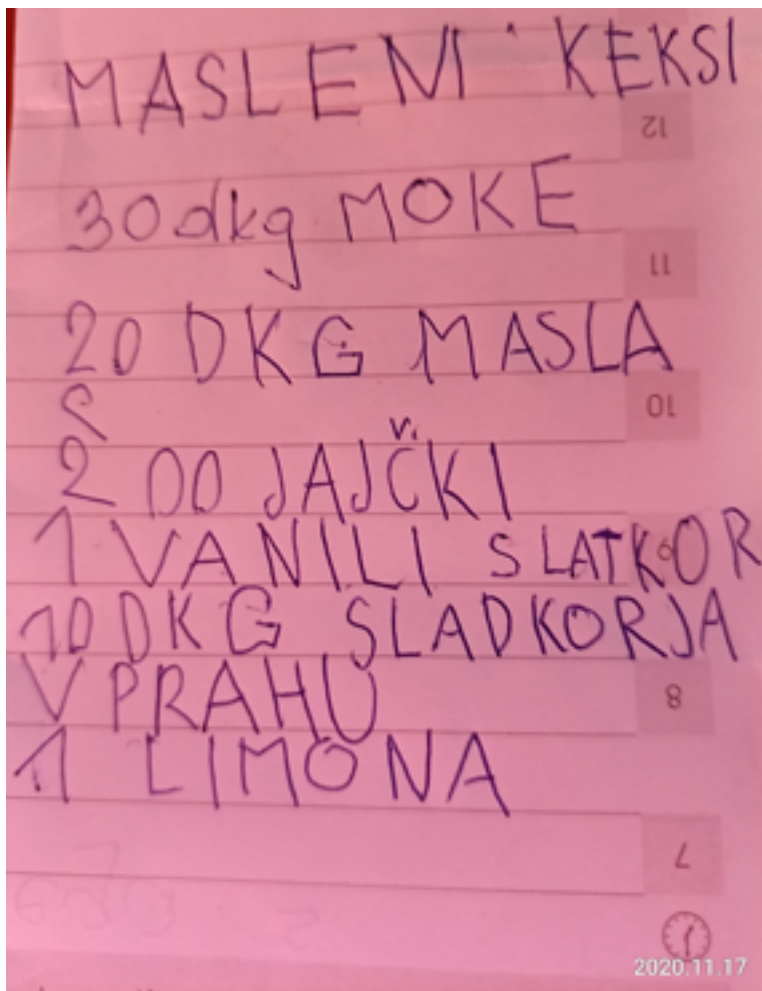 MASLENI KEKSI
12
30 dkg MOKE
11
20 DKG MASLA
10
2 DO JAJČKI
1 VANILI SLATKOR
10 DKG SLADKORJA
V PRAHU
8
1 LIMONA
7
2020.11.17